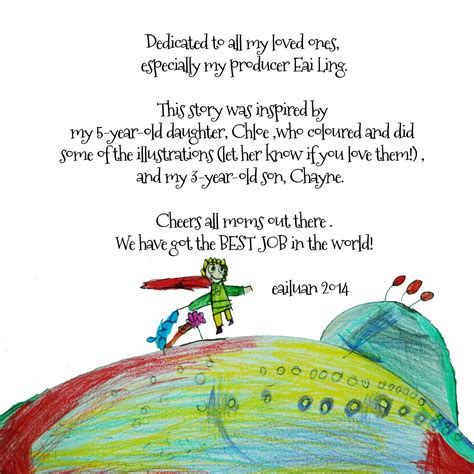 Dedicated to all my loved ones,
especially my producer Eai Ling.
This story was inspired by
my 5-year-old daughter, Chloe ,who coloured and did
some of the illustrations (let her know if you love them!) ,
and my 3-year-old son, Chayne.
Cheers all moms out there .
We have got the BEST JOB in the world!
eailuan 2014